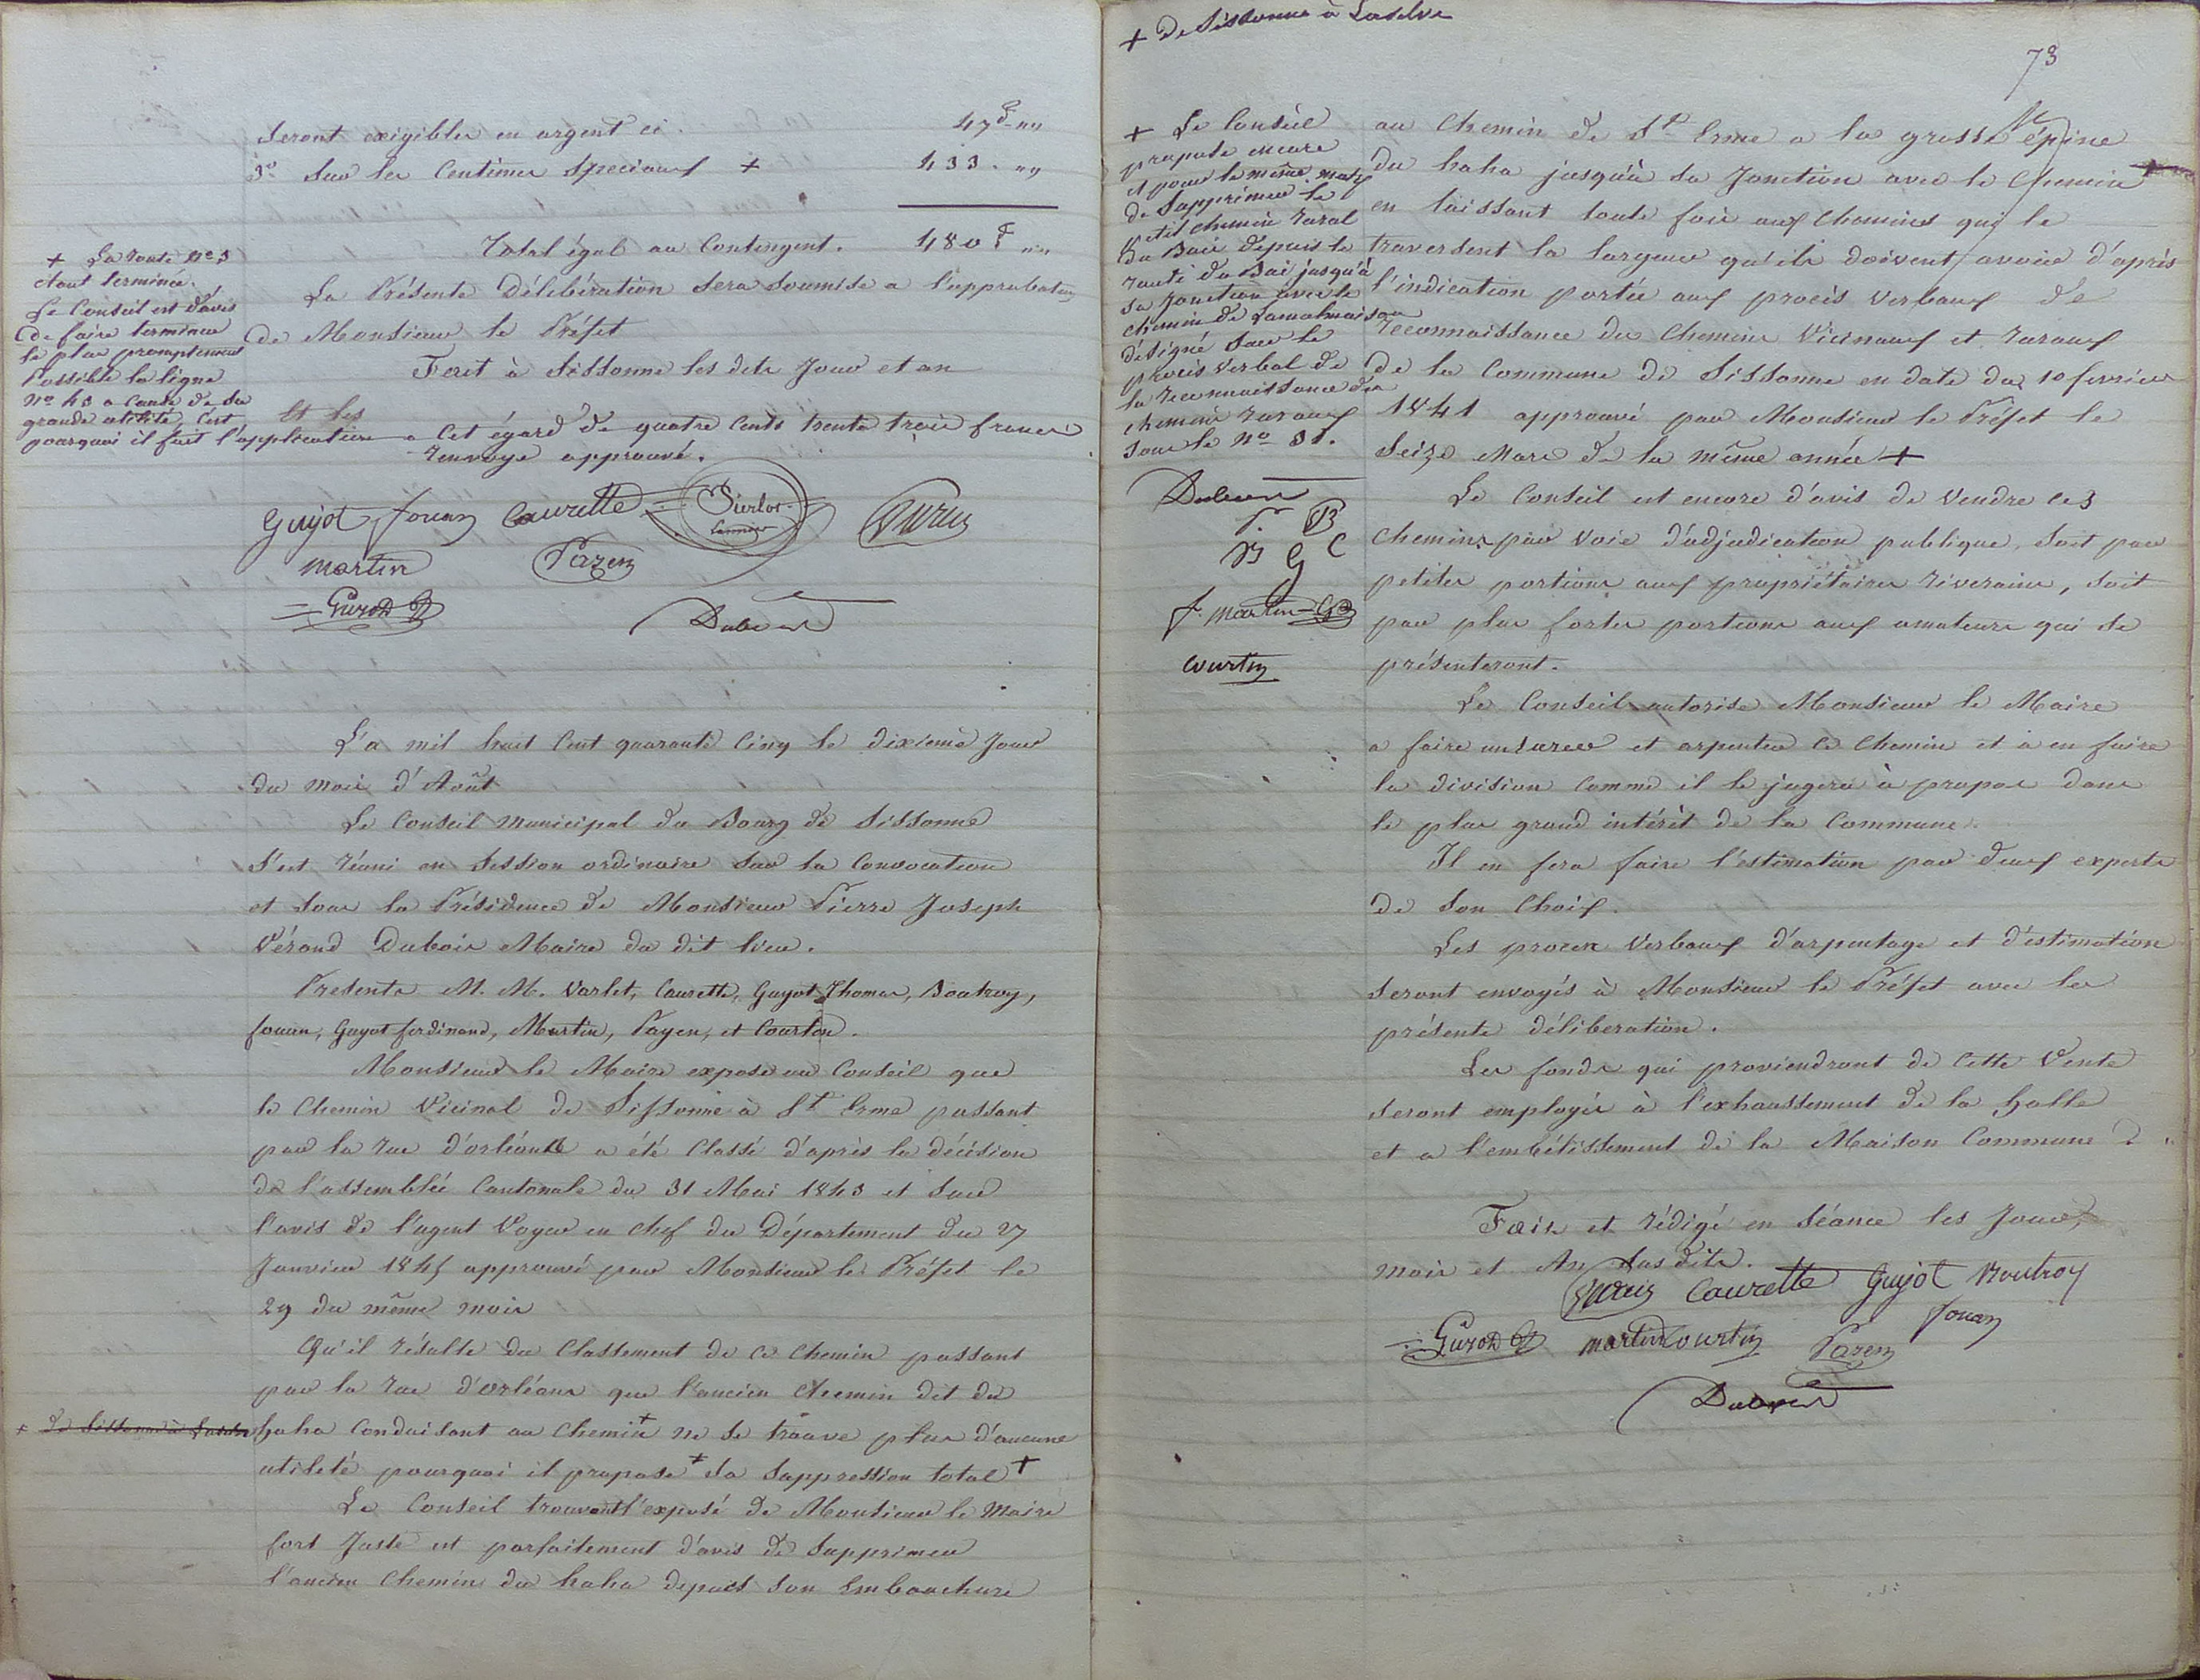 Seront exigibles en argent ci. 47 f „„
3º Sur les Centimes Speciaux + 433. „„
Total égal au Contingent. 480 f „„
La Présente Délibération sera soumise a l'approbation
de Monsieur le Préfet
Fait à Sissonne les dits Jour et an
+ La route Nº 3
étant terminée.
Le Conseil est d'avis
de faire terminer
le plus promptement
Possible la ligne
Nº 43 a cause de sa
grande utilité, C'est
pourquoi il fait l'application a Cet égard de quatre Cents trente trois francs
renvoye approuvé.
Guyot Jouan Caurette
Martin Payen
Guyot f
Dubois
L'a mil huit Cent quarante Cinq le dixieme Jour
du mois d'Août
Le Conseil Municipal du Bourg de Sissonne
S'est réuni en Session ordinaire sur la Convocation
et sous la Présidence de Monsieur Pierre Joseph
Vérand Dubois Maire du dit lieu.
Presents M. M. Varlet, Caurette, Guyot Thomas, Boutroy,
Jouan, Guyot ferdinand, Martin, Payen, et Courtin.
Monsieur le Maire expose au Conseil que
le Chemin Vicinal de Sissonne à St Erme passant
par la rue d'orléans a été Classé d'après la décision
de l'assemblée Cantonale du 31 Mai 1843 et sur
l'avis de l'agent Voyer en Chef du Département du 27
Janvier 1845 approuvé par Monsieur le Préfet le
29 du même mois
Qu'il résulte du Classement de ce Chemin passant
par la rue d'orléans que l'ancien Chemin dit du
+ de Sissonne à Laselve
haha Conduisant au Chemin + ne se trouve plus d'aucune
utileté pourquoi il propose + sa suppression total +
Le Conseil trouvant l'exposé de Monsieur le Maire
fort Juste est parfaitement d'avis de Supprimer
l'ancien Chemin du haha depuis son Embouchure
+ de Sissonne à Laselve
73
au Chemin de St Erme a la grosse épine
du haha jusqu'à sa Jonction avec le Chemin +
en laissant toute fois aux Chemins qui le
traversent la largeur qu'ils doivent avoir d'après
l'indication portée aux procès Verbaux de
reconnaissance des Chemins Vicinaux et ruraux
de la Commune de Sissonne en date du 10 fevrier
1841 approuvé par Monsieur le Préfet le
Seize Mars de la même année +
+ Le Conseil
propose encore
et pour le même motif
de Supprimer le
petit chemin rural
du Bois depuis la
route du Bois jusqu'à
sa Jonction avec le
chemin de Lamalmaison
désigné sur le
procès Verbal de
la reconnaissance des
chemins ruraux
sous le Nº 31.
Dubois
P. B
B G C
f. Martin G
Courtin
Le Conseil est encore d'avis de Vendre ces
Chemins par Voie d'adjudication publique, soit par
petites portions aux propriétaires riverains, soit
par plus fortes portions aux amateurs qui se
présenteront.
Le Conseil autorise Monsieur le Maire
a faire mesurer et arpenter ce Chemin et à en faire
la division Comme il le jugera à propos dans
le plus grand intérêt de la Commune.
Il en fera faire l'estimation par deux experts
de Son Choix.
Les procès Verbaux d'arpentage et d'estimation
seront envoyés à Monsieur le Préfet avec la
présente déliberation.
Les fonds qui proviendront de Cette Vente
seront employés à l'exhaussement de la halle
et a l'embélissement de la Maison Commune
Fais et rédigé en séance les Jour,
mois et An Susdits.
Caurette Guyot Boutroy
Jouan
Guyot f Martin Courtin Payen
Dubois